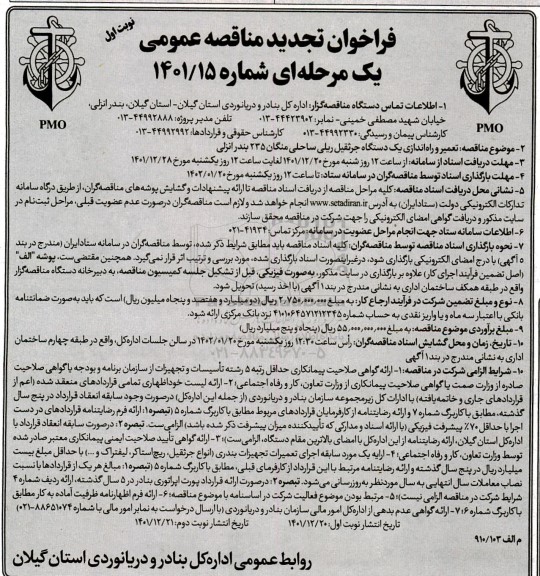 نوبت اول
فراخوان تجدید مناقصه عمومی
یک مرحله‌ای شماره ۱۴۰۱/۱۵
PMO
PMO
۱- اطلاعات تماس دستگاه مناقصه‌گزار: اداره کل بنادر و دریانوردی استان گیلان- استان گیلان، بندر انزلی،
خیابان شهید مصطفی خمینی- نمابر: ۴۴۴۲۳۹۰۲-۰۱۳ تلفن مدیر پروژه: ۴۴۹۹۲۸۸۸-۰۱۳
کارشناس پیمان و رسیدگی: ۴۴۹۹۲۳۳۰-۰۱۳ کارشناس حقوقی و قراردادها: ۴۴۹۹۲۹۹۲-۰۱۳
۲- موضوع مناقصه: تعمیر و راه‌اندازی یک دستگاه جرثقیل ریلی ساحلی منگان ۲۳۵ بندر انزلی
۳- مهلت دریافت اسناد از سامانه: از ساعت ۱۲ روز شنبه مورخ ۱۴۰۱/۱۲/۲۰ لغایت ساعت ۱۲ روز یکشنبه مورخ ۱۴۰۱/۱۲/۲۸
۴- مهلت بارگذاری اسناد توسط مناقصه‌گران در سامانه ستاد: تا ساعت ۱۲ روز یکشنبه مورخ ۱۴۰۲/۰۱/۲۰
۵- نشانی محل دریافت اسناد مناقصه: کلیه مراحل مناقصه از دریافت اسناد مناقصه تا ارائه پیشنهادات و گشایش پوشه‌های مناقصه‌گران، از طریق درگاه سامانه
تدارکات الکترونیکی دولت (ستادایران) به آدرس www.setadiran.ir انجام خواهد شد و لازم است مناقصه‌گران درصورت عدم عضویت قبلی، مراحل ثبت‌نام در
سایت مذکور و دریافت گواهی امضای الکترونیکی را جهت شرکت در مناقصه محقق سازند.
۶- اطلاعات سامانه ستاد جهت انجام مراحل عضویت در سامانه: مرکز تماس: ۴۱۹۳۴-۰۲۱
۷- نحوه بارگذاری اسناد مناقصه توسط مناقصه‌گران: کلیه اسناد مناقصه باید مطابق شرایط ذکر شده، توسط مناقصه‌گران در سامانه ستادایران (مندرج در بند
۵ آگهی) با درج امضای الکترونیکی بارگذاری شود، درغیراینصورت اسناد بارگذاری شده، مورد بررسی و ترتیب اثر قرار نمی‌گیرد. همچنین مقتضی‌ست، پوشه "الف"
(اصل تضمین فرآیند اجرای کار) علاوه بر بارگذاری در سایت مذکور، به‌صورت فیزیکی، قبل از تشکیل جلسه کمیسیون مناقصه، به دبیرخانه دستگاه مناقصه‌گزار
واقع در طبقه همکف ساختمان اداری به نشانی مندرج در بند ۱ آگهی (با اخذ رسید) تحویل شود.
۸- نوع و مبلغ تضمین شرکت در فرآیند ارجاع کار: به مبلغ ۲,۷۵۰,۰۰۰,۰۰۰ ریال (دو میلیارد و هفتصد و پنجاه میلیون ریال) است که باید به‌صورت ضمانتنامه
بانکی با اعتبار سه ماه و یا واریز نقدی به حساب شماره ۴۱۰۱۰۶۴۵۷۱۲۱۲۳۴۵ نزد بانک مرکزی ارائه شود.
۹- مبلغ برآوردی موضوع مناقصه: به مبلغ ۵۵,۰۰۰,۰۰۰,۰۰۰ ریال (پنجاه و پنج میلیارد ریال)
۱۰- تاریخ، زمان و محل گشایش اسناد مناقصه‌گران: رأس ساعت ۱۲:۳۰ روز یکشنبه مورخ ۱۴۰۲/۰۱/۲۰ در سالن جلسات اداره‌کل، واقع در طبقه چهارم ساختمان
اداری به نشانی مندرج در بند ۱ آگهی
۱۰- شرایط الزامی شرکت در مناقصه: ۱- ارائه گواهی صلاحیت پیمانکاری حداقل رتبه ۵ رشته تأسیسات و تجهیزات از سازمان برنامه و بودجه یا گواهی صلاحیت
صادره از وزارت صمت یا گواهی صلاحیت پیمانکاری از وزارت تعاون، کار و رفاه اجتماعی؛ ۲- ارائه لیست خوداظهاری تمامی قراردادهای منعقده شده (اعم از
قراردادهای جاری و خاتمه‌یافته) با ادارات کل زیرمجموعه سازمان بنادر و دریانوردی (از جمله این اداره‌کل) درصورت وجود سابقه انعقاد قرارداد در پنج سال
گذشته، مطابق با کاربرگ شماره ۷ و ارائه رضایتنامه از کارفرمایان قراردادهای مربوط مطابق با کاربرگ شماره ۵ (تبصره۱: ارائه فرم رضایتنامه قراردادهای در دست
اجرا با حداقل ۷۰٪ پیشرفت فیزیکی (با ارائه اسناد و مدارکی که تأییدکننده میزان پیشرفت ذکر شده باشد) الزامی‌ست. تبصره ۲: درصورت سابقه انعقاد قرارداد با
اداره‌کل استان گیلان، ارائه رضایتنامه از این اداره‌کل با امضای بالاترین مقام دستگاه، الزامی‌ست)؛ ۳- ارائه گواهی تأیید صلاحیت ایمنی پیمانکاری معتبر صادر شده
توسط وزارت تعاون، کار و رفاه اجتماعی؛ ۴- ارایه یک مورد سابقه اجرای تعمیرات تجهیزات بندری (انواع جرثقیل، ریچ‌استاکر، لیفتراک و ...) با حداقل مبلغ بیست
میلیارد ریال در پنج سال گذشته و ارائه رضایتنامه مرتبط با این قرارداد از کارفرمای قبلی، مطابق با کاربرگ شماره ۵ (تبصره۱: مبالغ هر یک از قراردادها با نسبت
نصاب معاملات سال انتهایی به سال موردنظر به‌روزرسانی می‌شود. تبصره ۲: درصورت ارائه قرارداد پورت اپراتوری بنادر در ۵ سال گذشته، ارائه ردیف شماره ۴
شرایط شرکت در مناقصه الزامی نیست)؛ ۵- مرتبط بودن موضوع فعالیت شرکت در اساسنامه با موضوع مناقصه؛ ۶- ارائه فرم اظهارنامه ظرفیت آماده به کار مطابق
با کاربرگ شماره ۶؛ ۷- ارائه گواهی عدم بدهی از اداره‌کل امور مالی سازمان بنادر و دریانوردی (با ارسال درخواست به نمابر امور مالی با شماره ۸۸۶۵۱۰۷۴-۰۲۱)
تاریخ انتشار نوبت اول: ۱۴۰۱/۱۲/۲۰ تاریخ انتشار نوبت دوم: ۱۴۰۱/۱۲/۲۱
م الف ۹۱۰/۱۰۳
روابط عمومی اداره‌کل بنادر و دریانوردی استان گیلان